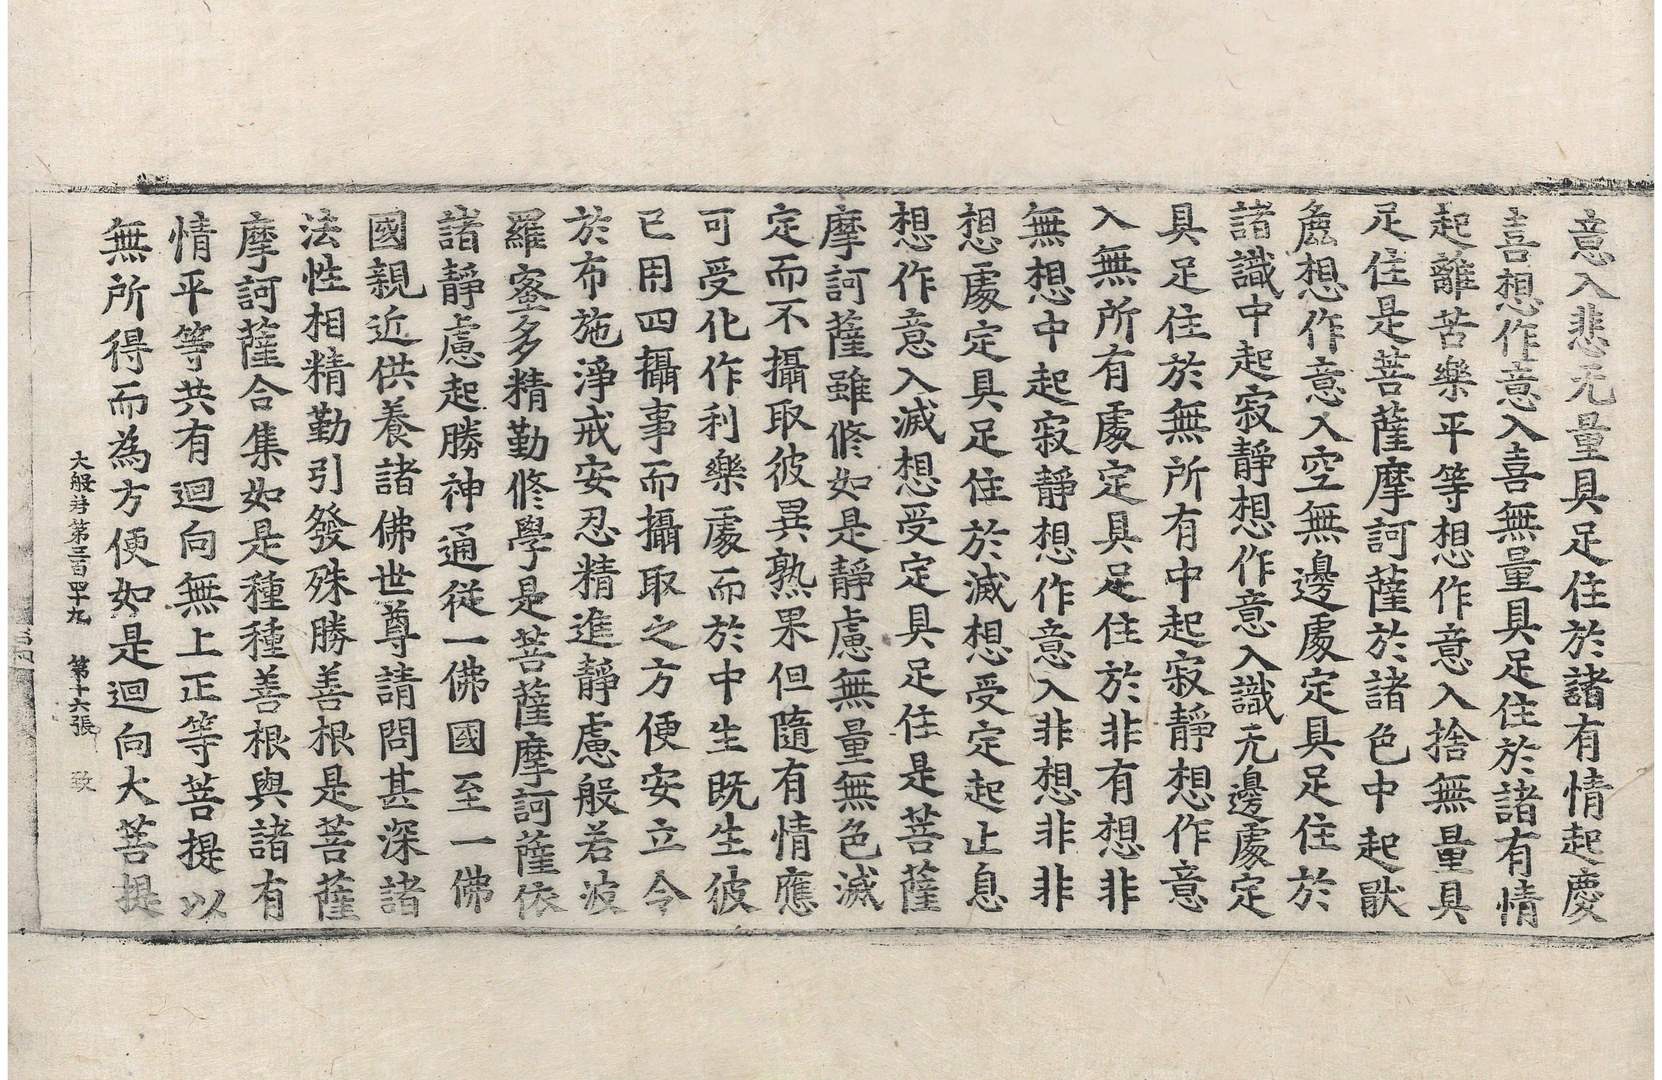 意入悲无量具足住於諸有情起慶
喜想作意入喜無量具足住於諸有情
起離苦樂平等想作意入捨無量具
足住是菩薩摩訶薩於諸色中起猒
麁想作意入空無邊處定具足住於
諸識中起寂靜想作意入識无邊處定
具足住於無所有中起寂靜想作意
入無所有處定具足住於非有想非
無想中起寂靜想作意入非想非非
想處定具足住於滅想受定起止息
想作意入滅想受定具足住是菩薩
摩訶薩雖修如是靜慮無量無色滅
定而不攝取彼異熟果但隨有情應
可受化作利樂處而於中生既生彼
已用四攝事而攝取之方便安立令
於布施淨戒安忍精進靜慮般若波
羅蜜多精勤修學是菩薩摩訶薩依
諸靜慮起勝神通從一佛國至一佛
國親近供養諸佛世尊請問甚深諸
法性相精勤引發殊勝善根是菩薩
摩訶薩合集如是種種善根與諸有
情平等共有迴向無上正等菩提以
無所得而為方便如是迴向大菩提
大般若第三百四十九 第十六張 致